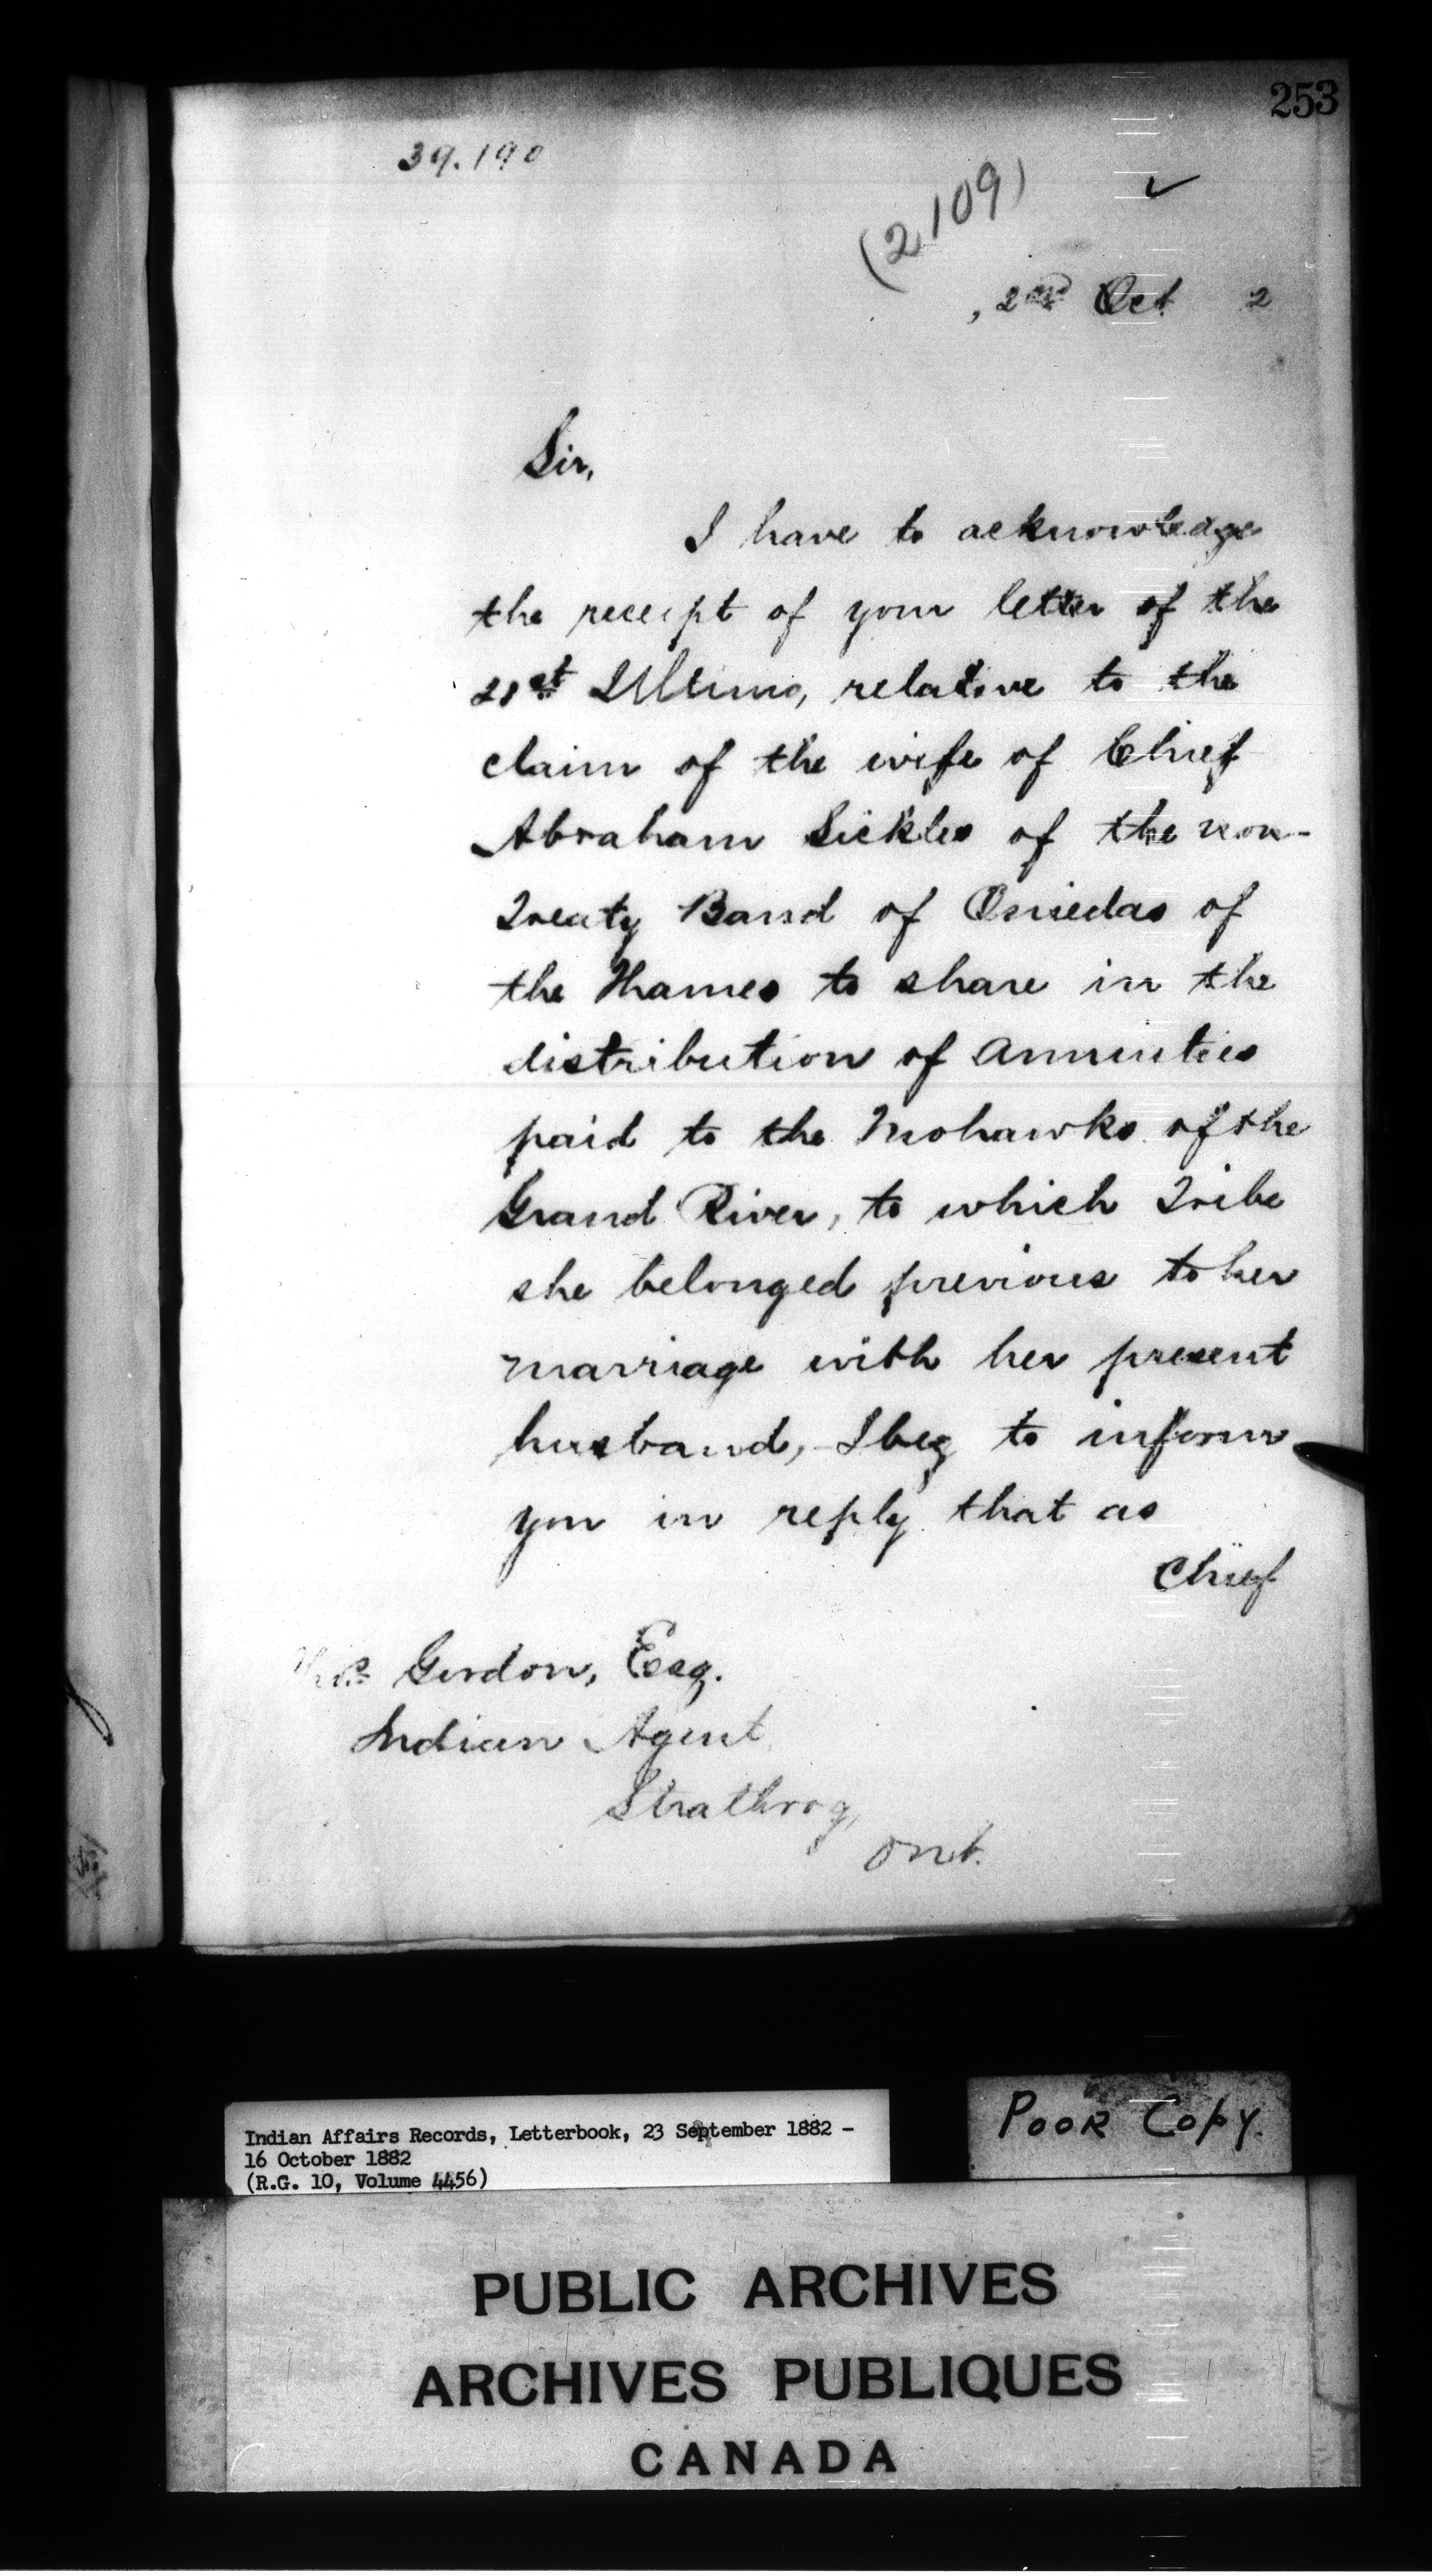 253
39.190
(2109)
, 2nd Oct 2
Sir,
I have to acknowledge
the receipt of your letter of the
21st Ultimo, relative to the
claim of the wife of Chief
Abraham Sickles of the non-
Treaty Band of Oniedas of
the Thames to share in the
distribution of Annuities
paid to the Mohawks of the
Grand River, to which Tribe
she belonged previous to her
marriage with her present
husband, I beg to inform
you in reply that as
Chief
Gordon, Esq.
Indian Agent
Strathroy,
Ont.
Indian Affairs Records, Letterbook, 23 September 1882 -
16 October 1882
(R.G. 10, Volume 4456)
POOR COPY.
PUBLIC ARCHIVES
ARCHIVES PUBLIQUES
CANADA